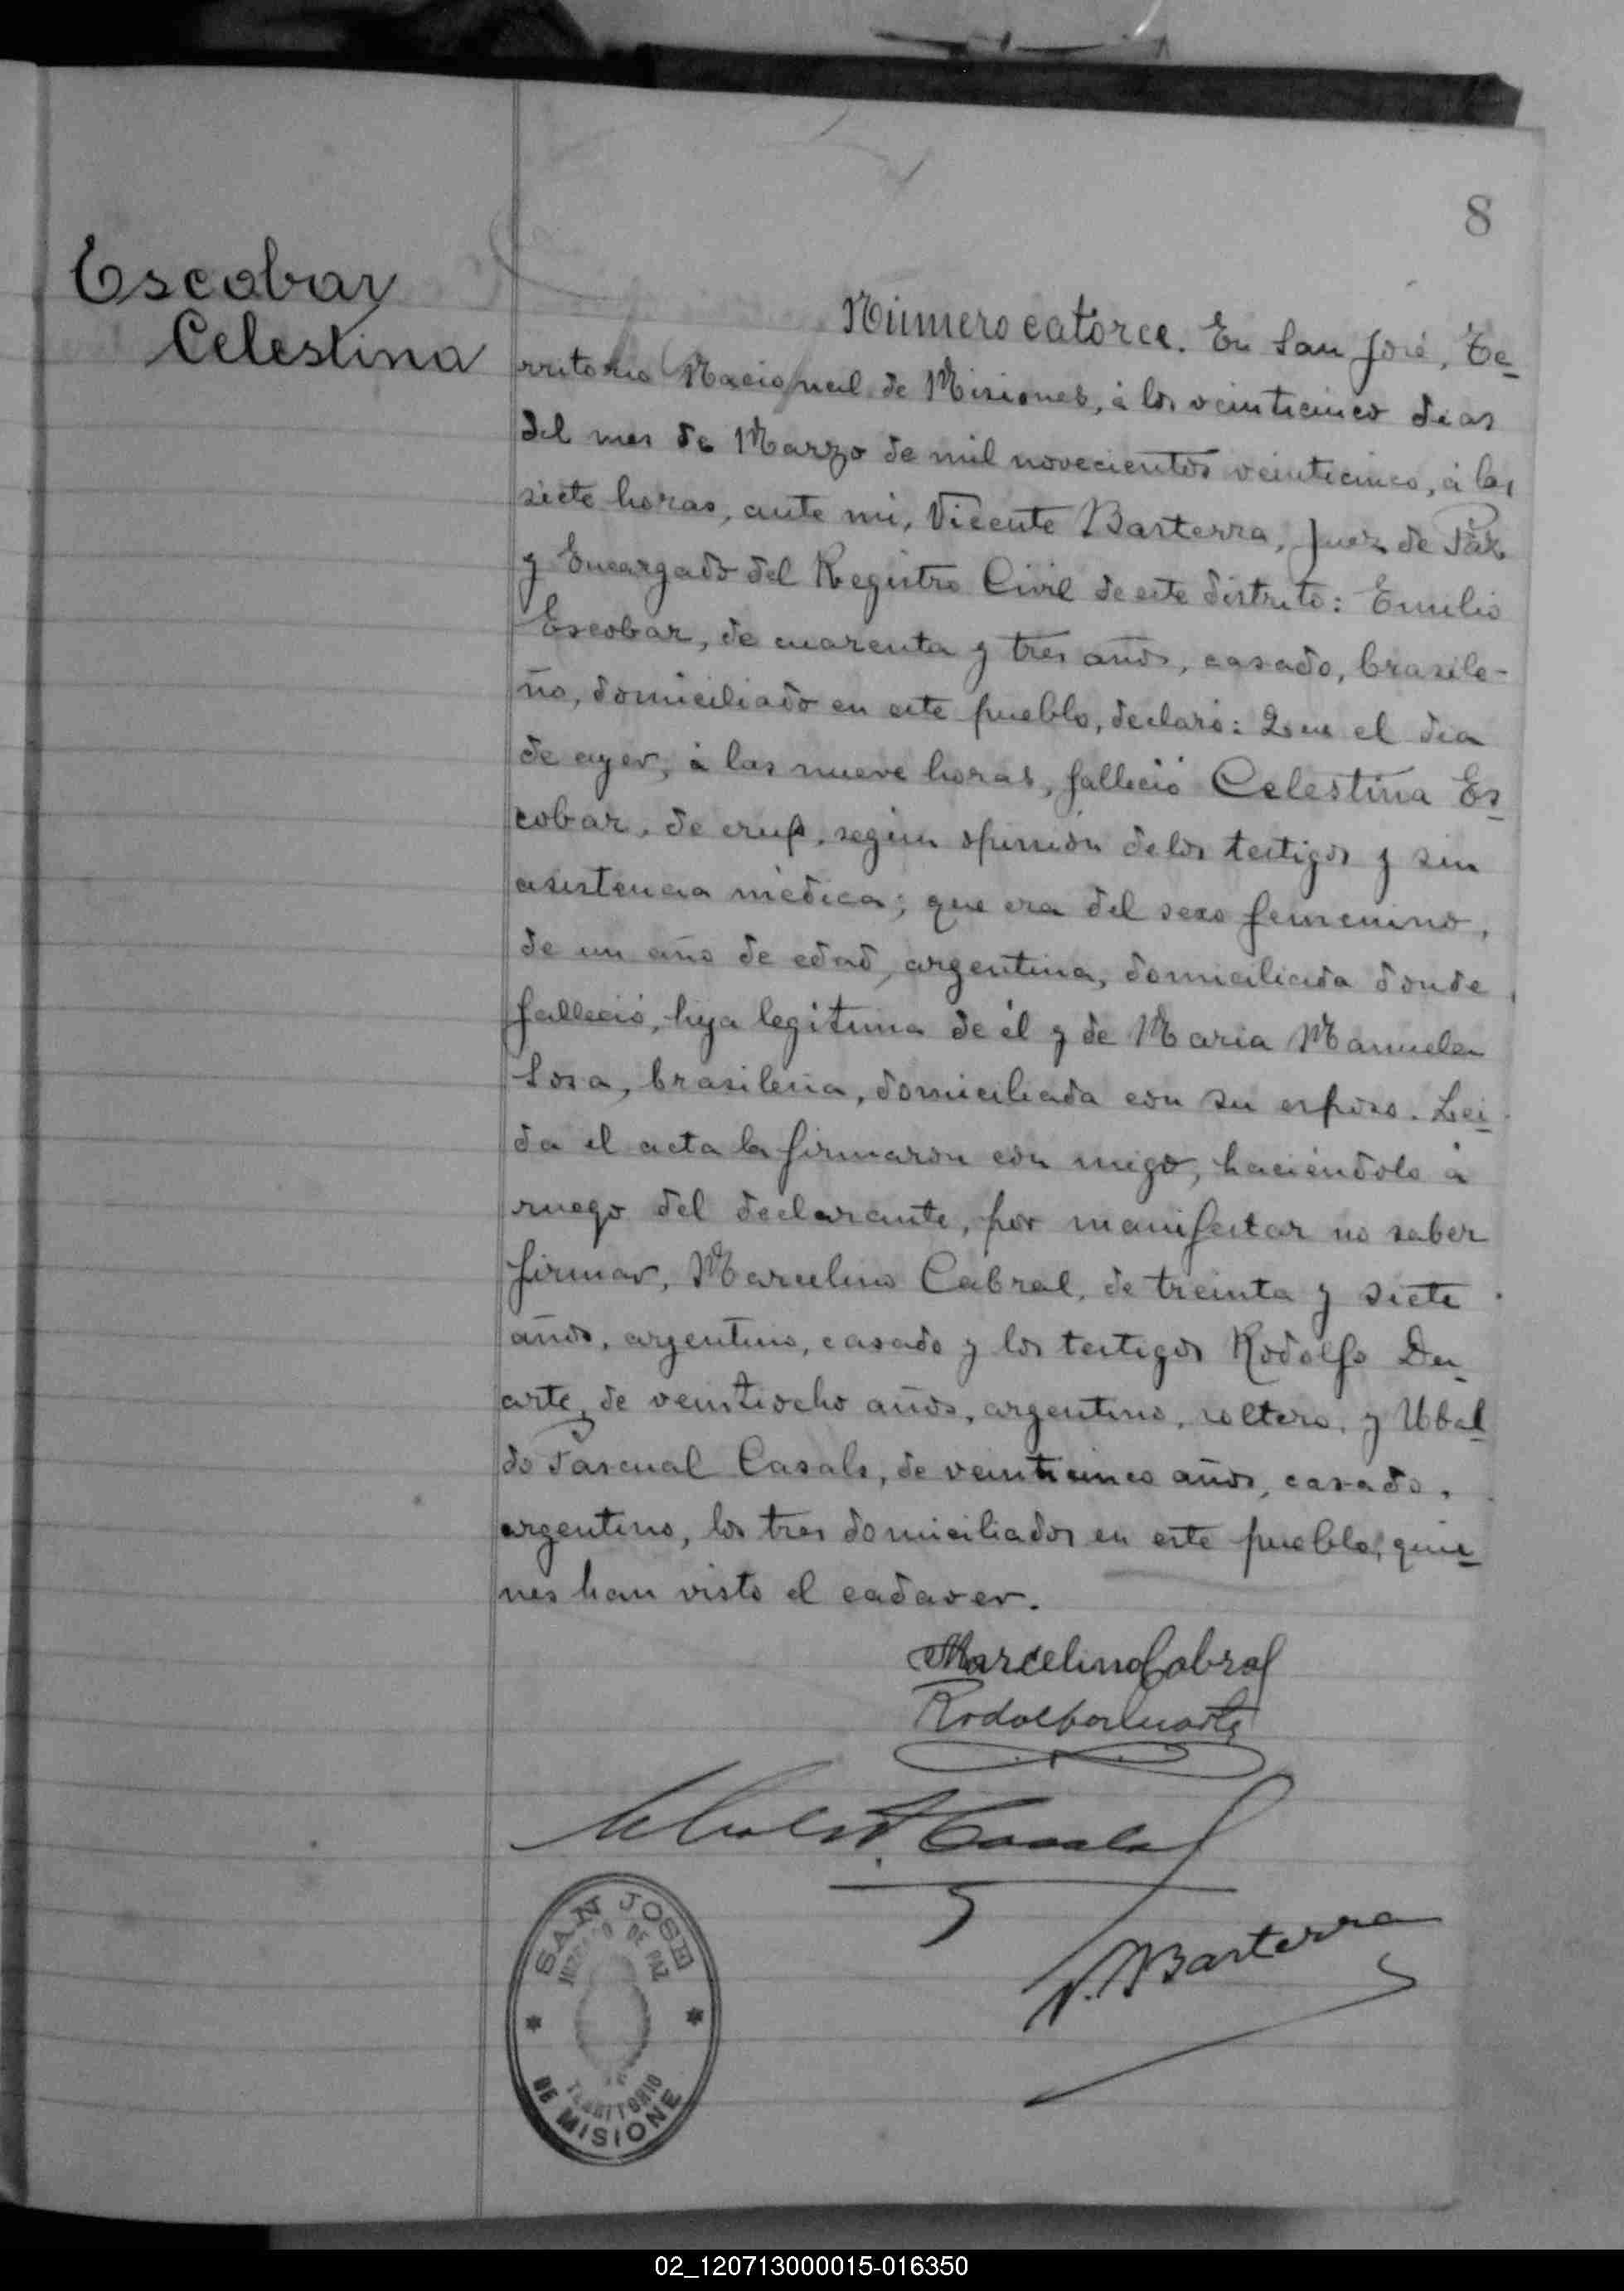 8
Escobar
Celestina
Número catorce. En San José, Te-
rritorio Nacional de Misiones, á los veinticinco dias
del mes de Marzo de mil novecientos veinticinco, á las
siete horas, ante mi, Vicente Barterra, Juez de Paz
y Encargado del Registro Civil de este distrito: Emilio
Escobar, de cuarenta y tres años, casado, brasile-
ño, domiciliado en este pueblo, declaró: Que el dia
de ayer, á las nueve horas, falleció Celestina Es-
cobar, de crup, según opinión de los testigos y sin
asistencia médica; que era del sexo femenino,
de un año de edad, argentina, domiciliada donde
falleció, hija legítima de él y de Maria Manuela
Sosa, brasileña, domiciliada con su esposo. Lei-
da el acta la firmaron con migo, haciéndolo á
ruego del declarante, por manifestar no saber
firmar, Marcelino Cabral, de treinta y siete
años, argentino, casado y los testigos Rodolfo Du-
arte, de veintiocho años, argentino, soltero, y Ubal-
do Pascual Casals, de veinticinco años, casado,
argentino, los tres domiciliados en este pueblo, quie-
nes han visto el cadaver.
Marcelino Cabral
Rodolfo Duarte
Ubaldo P. Casals
V. Barterra
SAN JOSE
JUZGADO DE PAZ
TERRITORIO
DE MISIONE
02_120713000015-016350